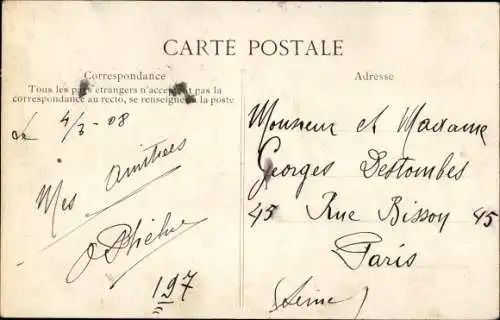 CARTE POSTALE
Correspondance
Tous les pays étrangers n'acceptent pas la
correspondance au recto, se renseigner à la poste
Adresse
4/3-08
Mes amitiés
197
Monsieur et Madame
Georges Destombes
45 Rue Bisson 45
Paris
(Seine)